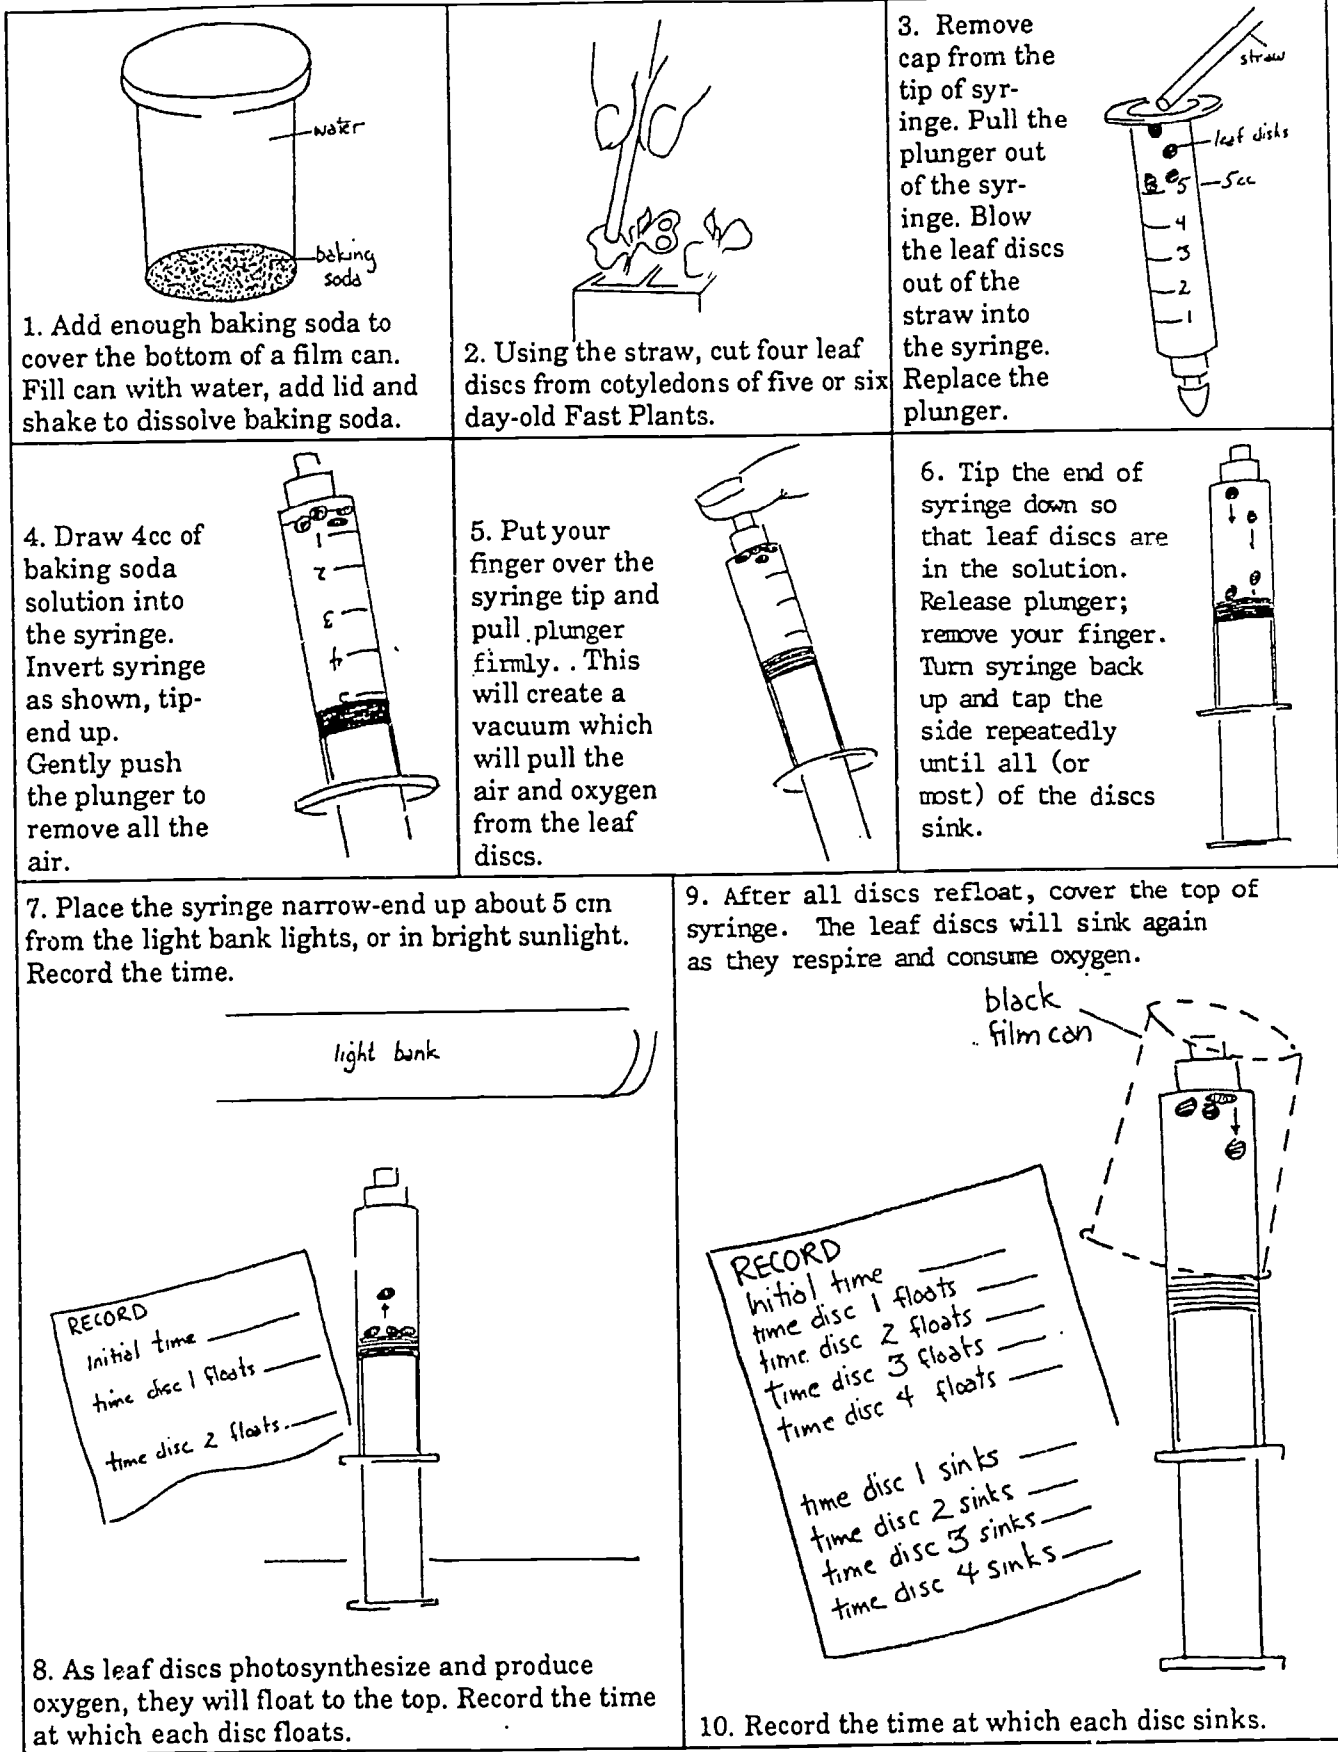 water
baking
soda
1. Add enough baking soda to
cover the bottom of a film can.
Fill can with water, add lid and
shake to dissolve baking soda.
2. Using the straw, cut four leaf
discs from cotyledons of five or six
day-old Fast Plants.
3. Remove
cap from the
tip of syr-
inge. Pull the
plunger out
of the syr-
inge. Blow
the leaf discs
out of the
straw into
the syringe.
Replace the
plunger.
straw
leaf disks
5 5cc
4
3
2
1
4. Draw 4cc of
baking soda
solution into
the syringe.
Invert syringe
as shown, tip-
end up.
Gently push
the plunger to
remove all the
air.
1
2
3
4
5
5. Put your
finger over the
syringe tip and
pull plunger
firmly. . This
will create a
vacuum which
will pull the
air and oxygen
from the leaf
discs.
6. Tip the end of
syringe down so
that leaf discs are
in the solution.
Release plunger;
remove your finger.
Turn syringe back
up and tap the
side repeatedly
until all (or
most) of the discs
sink.
7. Place the syringe narrow-end up about 5 cm
from the light bank lights, or in bright sunlight.
Record the time.
light bank
RECORD
Initial time
time disc 1 floats
time disc 2 floats.
8. As leaf discs photosynthesize and produce
oxygen, they will float to the top. Record the time
at which each disc floats.
9. After all discs refloat, cover the top of
syringe. The leaf discs will sink again
as they respire and consume oxygen.
black
film can
RECORD
Initial time
time disc 1 floats
time disc 2 floats
time disc 3 floats
time disc 4 floats
time disc 1 sinks
time disc 2 sinks
time disc 3 sinks
time disc 4 sinks
10. Record the time at which each disc sinks.